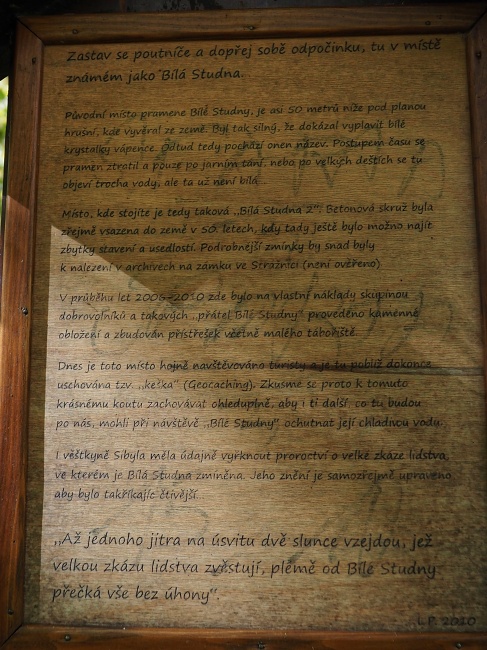 Zastav se poutníče a dopřej sobě odpočinku, tu v místě
známém jako Bílá Studna.
Původní místo pramene Bílé Studny, je asi 50 metrů níže pod planou
hrušní, kde vyvěral ze země. Byl tak silný, že dokázal vyplavit bílé
krystalky vápence. Odtud tedy pochází onen název. Postupem času se
pramen ztrotil a pouze po jarním tání, nebo po velkých deštích se tu
objeví trocha vody, ale ta už není bílá...
Místo, kde stojíte je tedy taková „Bílá Studna 2“. Betonová skruž byla
zřejmě vsazena do země v 50. letech, kdy tady ještě bylo možno najít
zbytky stavení a usedlostí. Podrobnější zmínky by snad byly
k nalezení v archivech na zámku ve Strážnici (není ověřeno)
V průběhu let 2006-2010 zde bylo na vlastní náklady skupinou
dobrovolníků a takových „přátel Bílé Studny“ provedeno kamenné
obložení a zbudován přístřešek včetně malého tábořiště.
Dnes je toto místo hojně navštěvováno turisty a je tu poblíž dokonce
uschována tzv. „keška“ (Geocaching). Zkusme se proto k tomuto
krásnému koutu zachovávat ohleduplně, aby i ti další, co tu budou
po nás, mohli při návštěvě „Bílé Studny“ ochutnat její chladnou vodu.
I věštkyně Sibyla měla údajně vyrknout proroctví o velké zkáze lidstva,
ve kterém je Bílá Studna zmíněna. Jeho znění je samozřejmě upraveno,
aby bylo takříkajíc čtivější.
„Až jednoho jitra na úsvitu dvě slunce vzejdou, jež
velkou zkázu lidstva zvěstují, plémě od Bílé Studny
přečká vše bez úhony“.
L.P. 2010